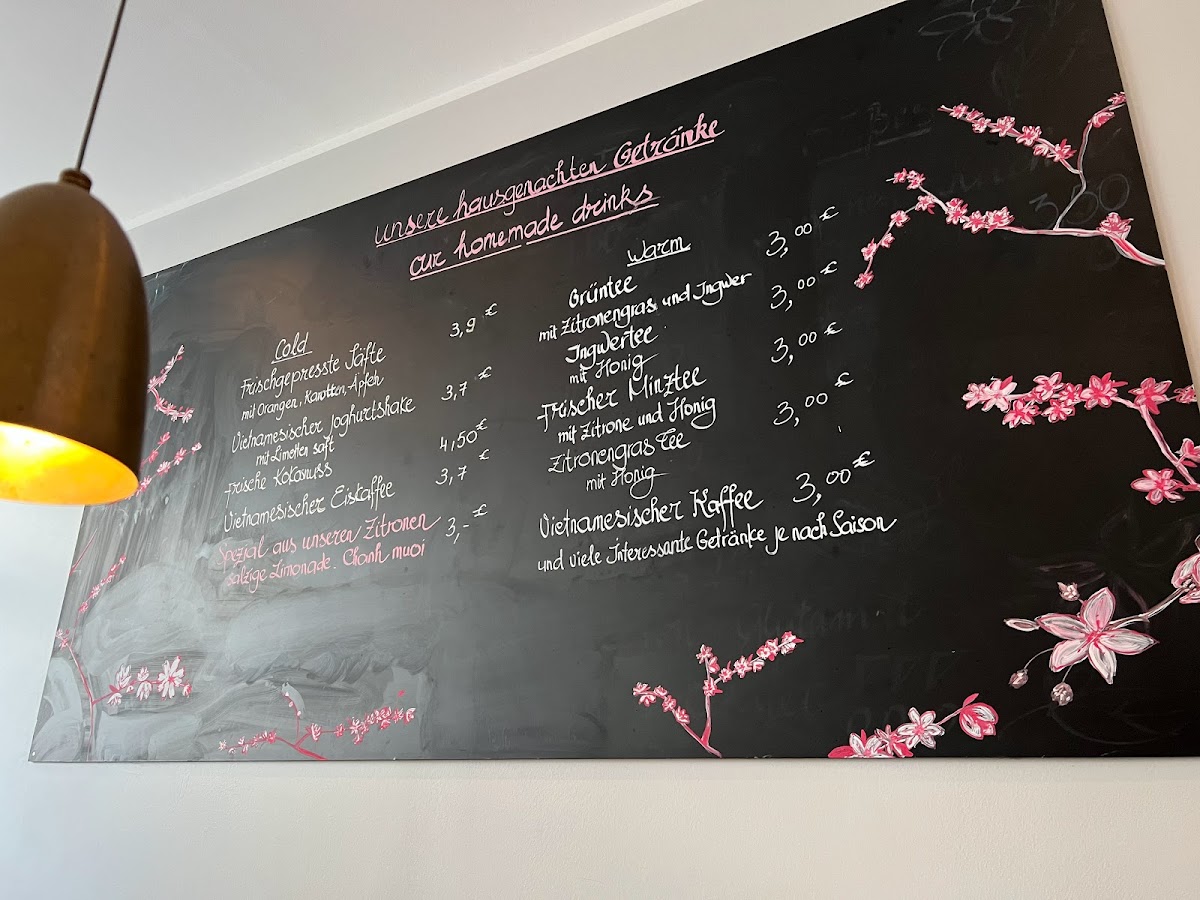 unsere hausgemachten Getränke
our homemade drinks
Cold
Frischgepresste Säfte 3,9 €
mit Orangen, Karotten, Äpfeln
Vietnamesischer Joghurtshake 3,7 €
mit Limetten saft
Frische Kokosnuss 4,50 €
Vietnamesischer Eiskaffee 3,7 €
Spezial aus unseren Zitronen 3,- €
salzige Limonade. Chanh muoi
Warm
Grüntee 3,00 €
mit Zitronengras und Ingwer
Ingwertee 3,00 €
mit Honig
Frischer Minztee 3,00 €
mit Zitrone und Honig
Zitronengras Tee 3,00 €
mit Honig
Vietnamesischer Kaffee 3,00 €
und viele Interessante Getränke je nach Saison